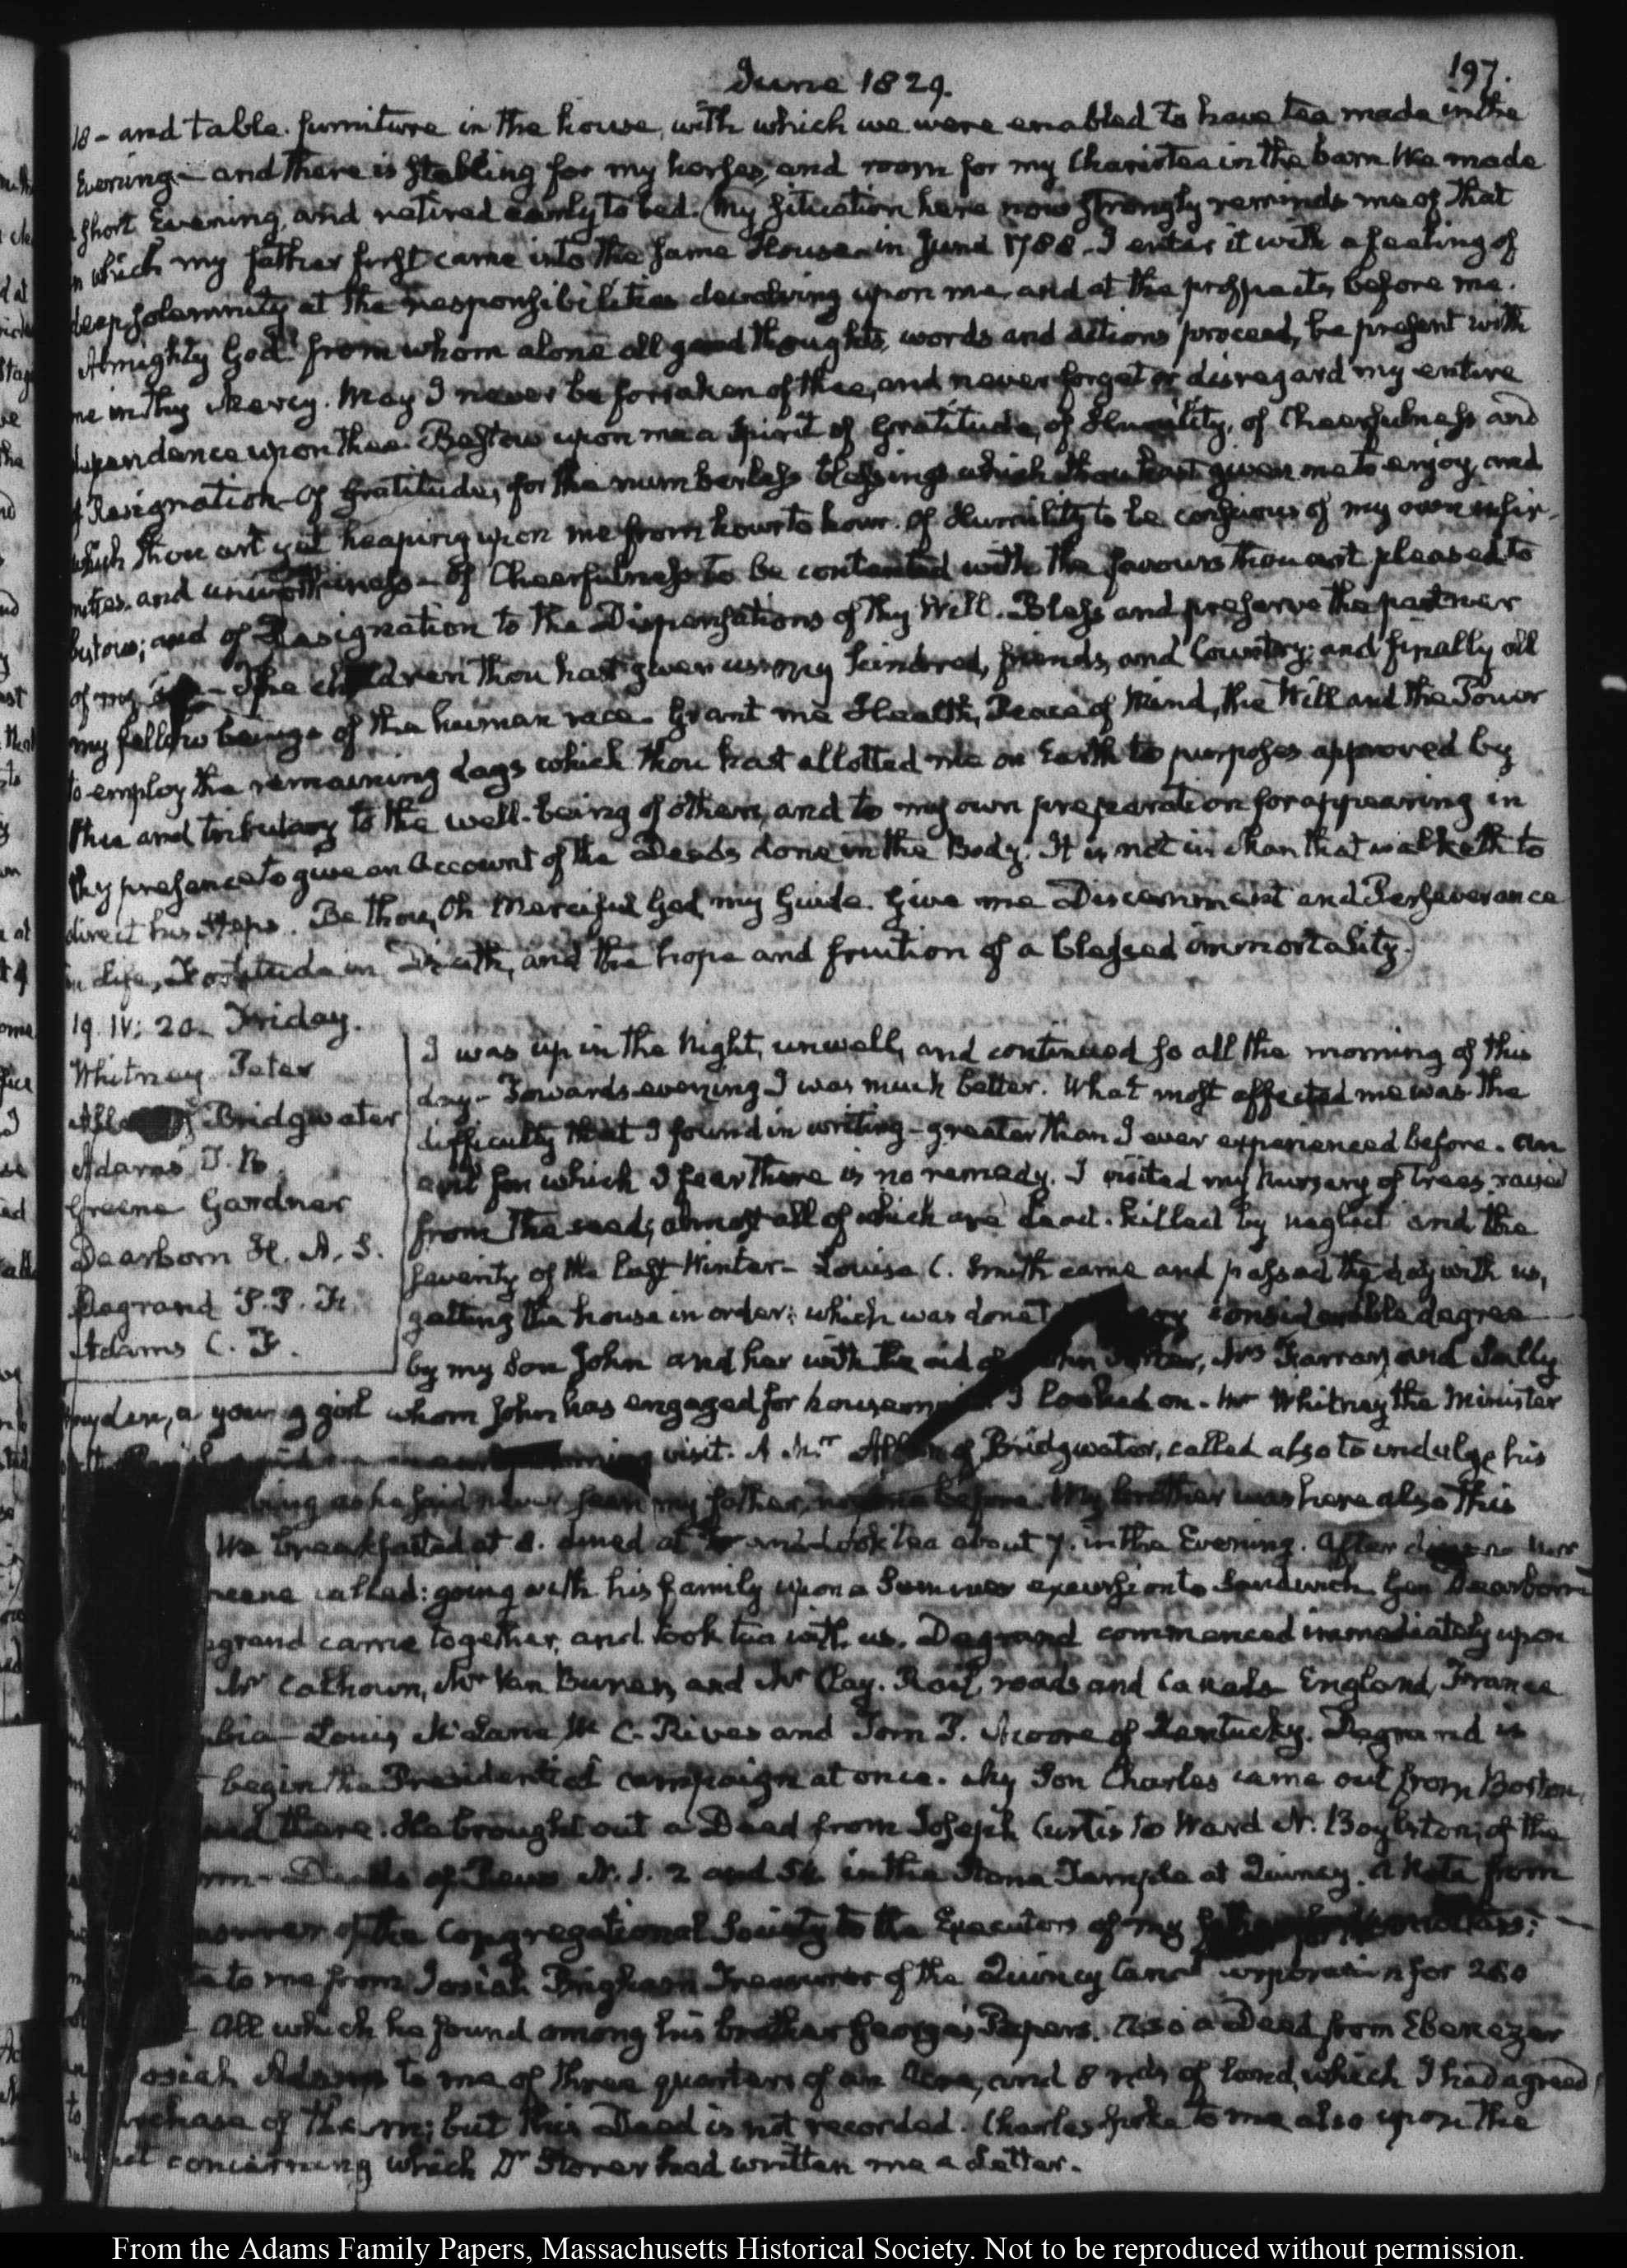 June 1829.
197.
18 - and table furniture in the house, with which we were enabled to have tea made in the
Evening - and there is stabling for my horses, and room for my Chariotee in the barn We made
short Evening, and retired early to bed. (My situation here now strongly reminds me of that
in which my father first came into the same House in June 1788. I enter it with a feeling of
deep solemnity at the responsibilities devolving upon me, and at the prospects before me.
Almighty God! from whom alone all good thoughts, words and actions proceed, be present with
me in thy Mercy. May I never be forsaken of thee, and never forget or disregard my entire
dependence upon thee. Bestow upon me a Spirit of Gratitude, of Humility, of Cheerfulness and
of Resignation - Of Gratitude, for the numberless blessings which thou hast given me to enjoy, and
which thou art yet heaping upon me from hour to hour. Of Humility to be conscious of my own infir-
mities, and unworthiness - Of Cheerfulness to be contented with the favours thou art pleased to
bestow; and of Resignation to the Dispensations of thy Will. Bless and preserve the partner
of my - The children thou hast given us - my kindred, friends, and Country; and finally all
my fellow beings of the human race. Grant me Health, Peace of Mind, the Will and the Power
to employ the remaining days which thou hast allotted me on Earth to purposes approved by
thee and tributary to the well-being of others, and to my own preparation for appearing in
thy presence to give an Account of the Deeds done in the Body. It is not in Man that walketh to
direct his steps. Be thou, Oh Merciful God, my Guide. Give me Discernment and Perseverance
in Life, Fortitude in Death, and the hope and fruition of a blessed immortality.)
19. IV: 20. Friday.
Whitney Peter
Bridgwater
Adams T. B.
Greene Gardner
Dearborn H. A. S.
Degrand P. P. F.
Adams C. F.
I was up in the Night, unwell, and continued so all the morning of this
day - Towards evening I was much better. What most affected me was the
difficulty that I found in writing - greater than I ever experienced before. An
evil for which I fear there is no remedy. I visited my Nursery of trees, raised
from the seed; almost all of which are dead. Killed by neglect and the
severity of the last Winter - Louisa C. Smith came and passed the day with us,
getting the house in order: which was done considerable degree
by my Son John and her with the aid of Mrs Farrar, and Sally
a young girl whom John has engaged for I looked on. Mr Whitney the Minister
visit. A Mr of Bridgwater, called also to indulge his
as he said never seen my father, me before. My brother was here also this
We breakfasted at 8. dined at and took tea about 7. in the Evening. After Mr
called: going with his family upon a Summer excursion to Sandwich. Genl Dearborn
came together, and took tea with us. Degrand commenced immediately upon
Mr Calhoun, Mr Van Buren, and Mr Clay. Rail-roads and Canals England, France
Louis McLane, Wm C. Rives and Tom P. Moore of Kentucky. Degrand is
begin the Presidential campaign at once. My Son Charles came out from Boston,
there. He brought out a Deed from Joseph Curtis to Ward N. Boylston, of the
Deeds of Pews N. 1. 2 and 54 in the Stone Temple at Quincy. A Note from
of the Congregational Society to the Executors of my
to me from Josiah Brigham Treasurer of the Quincy Canal corporation for 260
All which he found among his brother George's Papers. Also a Deed from Ebenezer
Josiah Adams to me of three quarters of an Acre, and 8 rods of land, which I had agreed
of them; but this Deed is not recorded. Charles spoke to me also upon the
concerning which Dr Storer had written me a Letter.
From the Adams Family Papers, Massachusetts Historical Society. Not to be reproduced without permission.